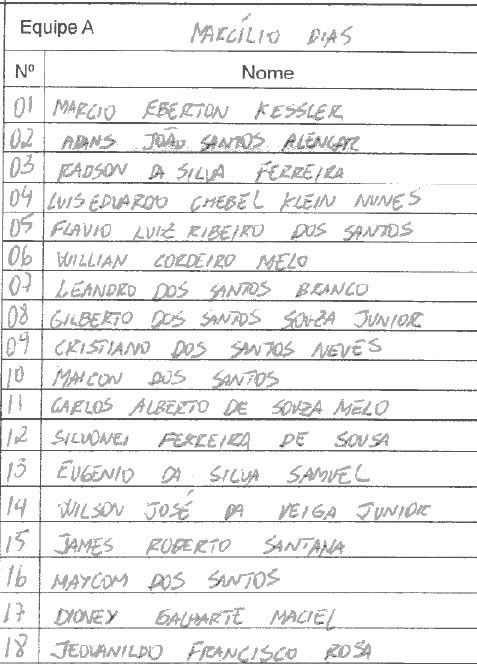 Equipe A MARCÍLIO DIAS
Nº Nome
01 MARCIO EBERTON KESSLER
02 ADANS JOÃO SANTOS ALENCAR
03 RADSON DA SILVA FERREIRA
04 LUIS EDUARDO CHEBEL KLEIN NUNES
05 FLAVIO LUIZ RIBEIRO DOS SANTOS
06 WILLIAN CORDEIRO MELO
07 LEANDRO DOS SANTOS BRANCO
08 GILBERTO DOS SANTOS SOUZA JUNIOR
09 CRISTIANO DOS SANTOS NEVES
10 MAICON DOS SANTOS
11 CARLOS ALBERTO DE SOUZA MELO
12 SILVONEI FERREIRA DE SOUSA
13 EUGENIO DA SILVA SAMUEL
14 WILSON JOSÉ DA VEIGA JUNIOR
15 JAMES ROBERTO SANTANA
16 MAYCOM DOS SANTOS
17 DIONEY GALHARTE MACIEL
18 JEOVANILDO FRANCISCO ROSA